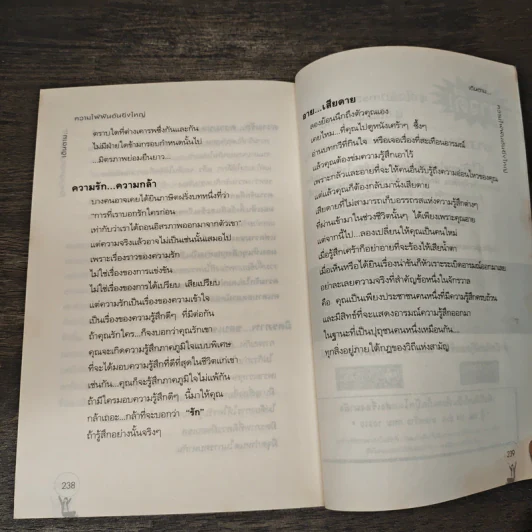 ความใฝ่ฝันอันยิ่งใหญ่
เดินตาม...
ตราบใดที่ต่างเคารพซึ่งกันและกัน
ไม่มีฝ่ายใดข้ามกรอบกำหนดนั้นไป
...มิตรภาพย่อมยืนยาว...
ความรัก...ความกล้า
บางคนอาจเคยได้ยินภาษิตฝรั่งบทหนึ่งที่ว่า
"การที่เราบอกรักใครก่อน
เท่ากับว่าเราได้ถอนอิสรภาพออกมาจากตัวเรา"
แต่ความจริงแล้วอาจไม่เป็นเช่นนั้นเสมอไป
เพราะเรื่องราวของความรัก
ไม่ใช่เรื่องของการแข่งขัน
ไม่ใช่เรื่องของการได้เปรียบ เสียเปรียบ
แต่ความรักเป็นเรื่องของความเข้าใจ
เป็นเรื่องของความรู้สึกดีๆ ที่มีต่อกัน
ถ้าคุณรักใคร...ก็จงบอกว่าคุณรักเขา
คุณจะเกิดความรู้สึกภาคภูมิใจแบบพิเศษ
ที่จะได้มอบความรู้สึกที่ดีที่สุดในชีวิตแก่เขา
เช่นกัน...คุณก็จะรู้สึกภาคภูมิใจไม่แพ้กัน
ถ้ามีใครมอบความรู้สึกดีๆ นี้มาให้คุณ
กล้าเถอะ...กล้าที่จะบอกว่า "รัก"
ถ้ารู้สึกอย่างนั้นจริงๆ
238
เดินตาม...
ความใฝ่ฝันอันยิ่งใหญ่
อาย...เสียดาย
ลองย้อนนึกถึงตัวคุณเอง
เคยไหม...ที่คุณไปดูหนังเศร้าๆ ซึ้งๆ
อ่านบทกวีที่กินใจ หรือเจอเรื่องที่สะเทือนอารมณ์
แล้วคุณต้องข่มความรู้สึกเอาไว้
เพราะกลัวและอายที่จะให้คนอื่นรับรู้ถึงความอ่อนไหวของคุณ
แต่แล้วคุณก็ต้องกลับมานั่งเสียดาย
เสียดายที่ไม่สามารถเก็บอรรถรสแห่งความรู้สึกต่างๆ
ที่ผ่านเข้ามาในช่วงชีวิตนั้นๆ ได้เพียงเพราะคุณอาย
แต่จากนี้ไป...ลองเปลี่ยนให้คุณเป็นคนใหม่
เมื่อรู้สึกเศร้าก็อย่าอายที่จะร้องไห้เสียน้ำตา
เมื่อเห็นหรือได้ยินเรื่องน่าขันก็หัวเราะระเบิดอารมณ์ออกมาเลย
อย่าละเลยความจริงที่สำคัญข้อหนึ่งในจักรวาล
คือ คุณเป็นเพียงประชาชนคนหนึ่งที่มีความรู้สึกครบถ้วน
และมีสิทธิ์ที่จะแสดงอารมณ์ความรู้สึกออกมา
ในฐานะที่เป็นปุถุชนคนหนึ่งเหมือนกัน...
ทุกสิ่งอยู่ภายใต้กฎของวิถีแห่งสามัญ
239